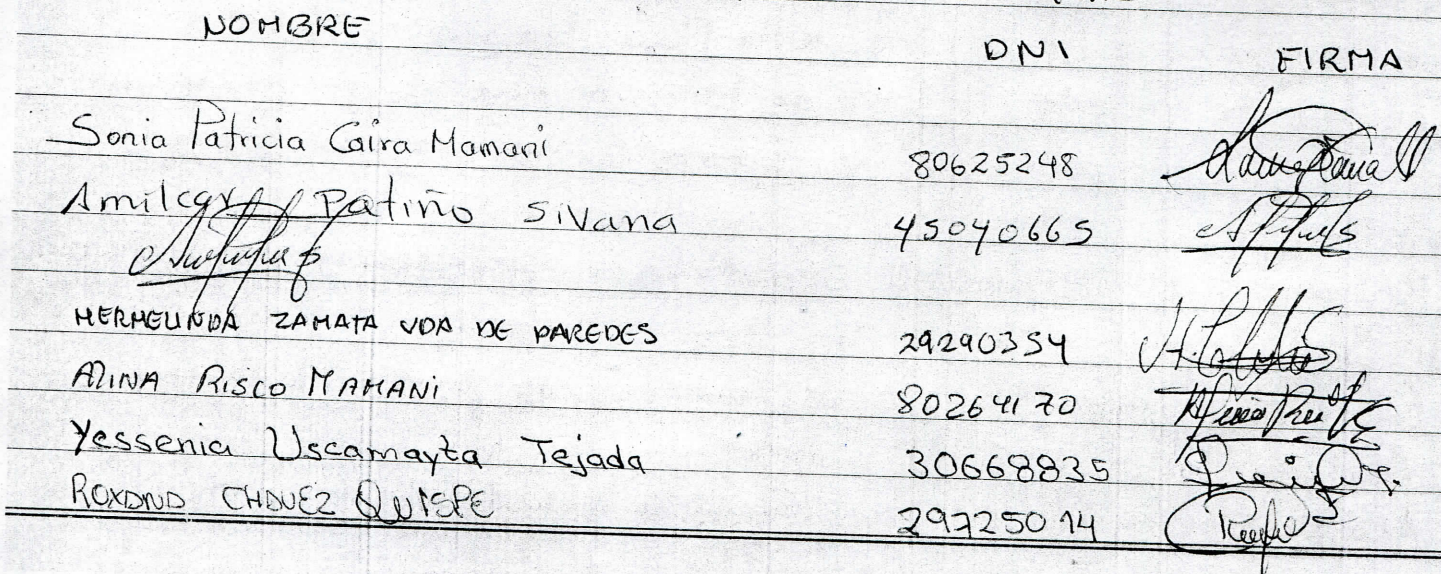 NOMBRE DNI FIRMA
Sonia Patricia Caira Mamani 80625248
Amilcar Patiño Sivana 45040665
HERMELINDA ZAMATA VDA DE PAREDES 29290354
ALINA RISCO MAMANI 80264170
Yessenia Uscamayta Tejada 30668835
ROXANA CHAVEZ QUISPE 29725014